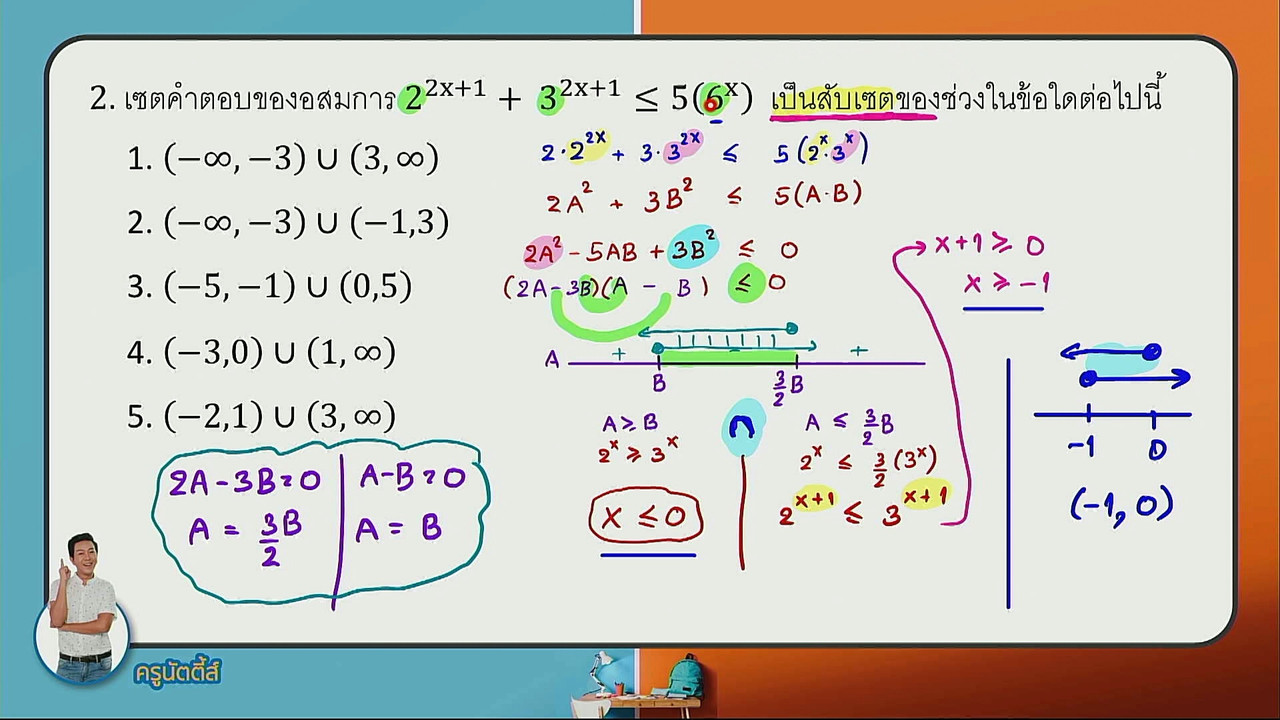 2. เซตคำตอบของอสมการ 2^(2x+1) + 3^(2x+1) ≤ 5(6^x) เป็นสับเซตของช่วงในข้อใดต่อไปนี้
1. (−∞, −3) ∪ (3, ∞)
2. (−∞, −3) ∪ (−1,3)
3. (−5, −1) ∪ (0,5)
4. (−3,0) ∪ (1, ∞)
5. (−2,1) ∪ (3, ∞)
2·2^(2x) + 3·3^(2x) ≤ 5(2^x·3^x)
2A² + 3B² ≤ 5(A·B)
2A² − 5AB + 3B² ≤ 0
(2A − 3B)(A − B) ≤ 0
A + − +
B 3/2 B
A ≥ B ∩ A ≤ 3/2 B
2^x ≥ 3^x 2^x ≤ 3/2 (3^x)
x ≤ 0 2^(x+1) ≤ 3^(x+1)
x+1 ≥ 0
x ≥ −1
−1 0
(−1, 0)
2A − 3B = 0 A − B = 0
A = 3B/2 A = B
ครูนัตตี้ส์